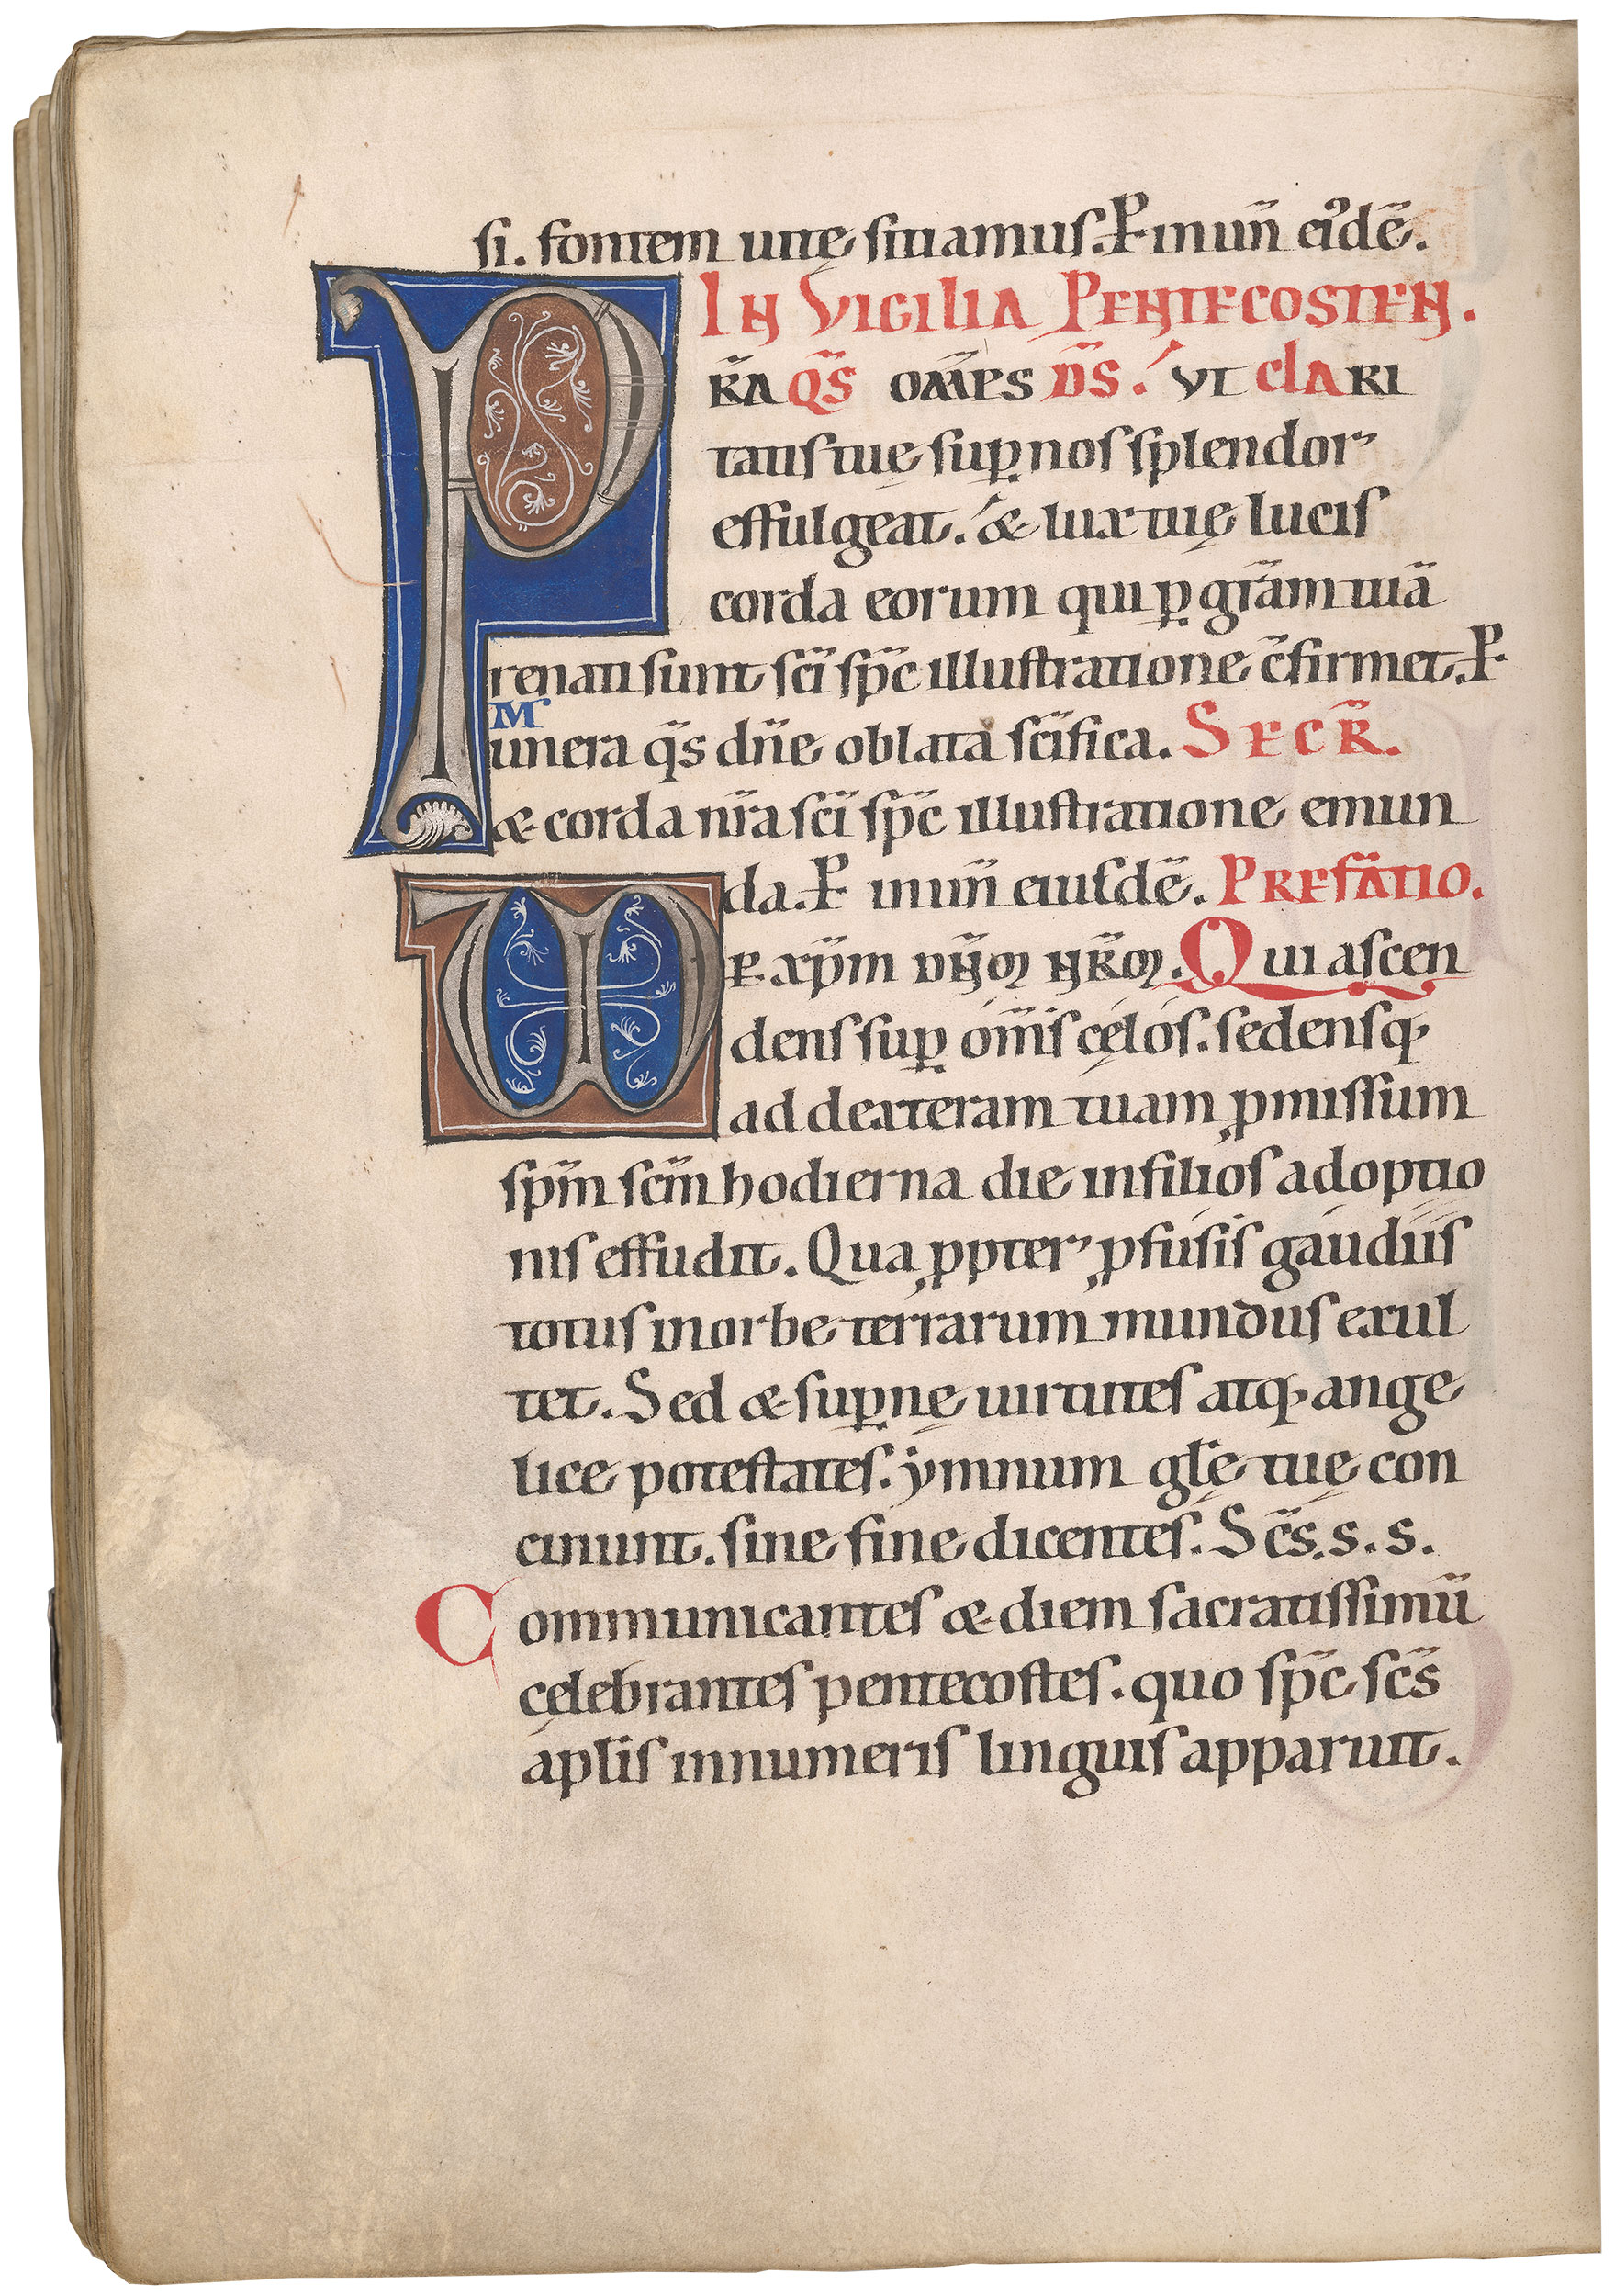 si. fontem uitę sitiamus. P̵ in un̄ ei᾽dē.
IN VIGILIA PENTECOSTEN.
PR̄A QS̄ OM̄PS DS̄. VT CLARI
tatis tuę sup̱ nos splendor
effulgeat. & lux tuę lucis
corda eorum qui p̱ gr̄am tuā
renati sunt sc̄i sp̄c illustratione c̄firmet. P̵
Munera q̄s dn̄e oblata sc̄ifica. SECR̄.
& corda nr̄a sc̄i sp̄c illustratione emun
da. P̵ in un̄ eiusdē. PREFĀTIO.
VE xp̄m DN̄M NR̄M. Qui ascen
dens sup̱ om̄s cęlos. sedensq;
ad dexteram tuam ꝓmissum
sp̄m sc̄m hodierna die in filios adoptio
nis effudit. Qua ꝓpter ꝓfusis gaudiis
totus in orbe terrarum mundus exul
tet. Sed & sup̱nę uirtutes atq; ange
lice potestates. ymnum gl̄ę tuę con
cinunt. sine fine dicentes. Sc̄s. s. s.
Communicantes & diem sacratissimū
celebrantes pentecostes. quo sp̄c sc̄s
apl̄is innumeris linguis apparuit.